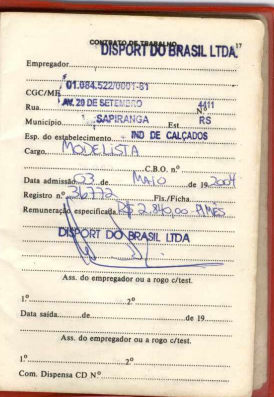 CONTRATO DE TRABALHO 17
DISPORT DO BRASIL LTDA.
Empregador
01.084.522/0001-81
CGC/MF
Rua AV. 20 DE SETEMBRO Nº 4411
Município SAPIRANGA Est. RS
Esp. do estabelecimento IND DE CALÇADOS
Cargo MODELISTA
C.B.O. nº
Data admissão 03 de MAIO de 19 2004
Registro nº 36772 Fls./Ficha
Remuneração especificada R$ 2.840,00 P/MES
DISPORT DO BRASIL LTDA
Ass. do empregador ou a rogo c/test.
1.º 2º
Data saída de de 19
Ass. do empregador ou a rogo c/test.
1.º 2º
Com. Dispensa CD Nº